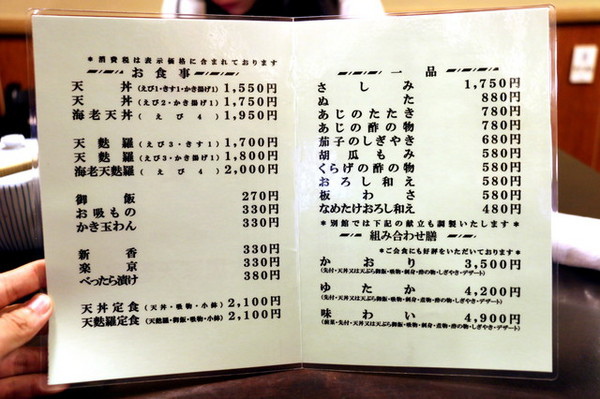 ＊消費税は表示価格に含まれております
お食事
天丼(えび1・きす1・かき揚げ1) 1,550円
天丼(えび2・かき揚げ1) 1,750円
海老天丼(えび4) 1,950円
天麩羅(えび3・きす1) 1,700円
天麩羅(えび3・かき揚げ1) 1,800円
海老天麩羅(えび4) 2,000円
御飯 270円
お吸もの 330円
かき玉わん 330円
新香 330円
楽京 330円
べったら漬け 380円
天丼定食(天丼・吸物・小鉢) 2,100円
天麩羅定食(天麩羅・御飯・吸物・小鉢) 2,100円
一品
さしみ 1,750円
ぬた 880円
あじのたたき 780円
あじの酢の物 780円
茄子のしぎやき 680円
胡瓜もみ 580円
くらげの酢の物 580円
おろし和え 580円
板わさ 580円
なめたけおろし和え 480円
＊別館では下記の献立も調製いたします
組み合わせ膳
＊ご会食にも好評をいただいております
かおり 3,500円
(先付・天丼又は天ぷら御飯・吸物・刺身・酢の物・しぎやき・デザート)
ゆたか 4,200円
(先付・天丼又は天ぷら御飯・吸物・刺身・煮物・酢の物・しぎやき・デザート)
味わい 4,900円
(前菜・先付・天丼又は天ぷら御飯・吸物・刺身・煮物・酢の物・しぎやき・デザート)